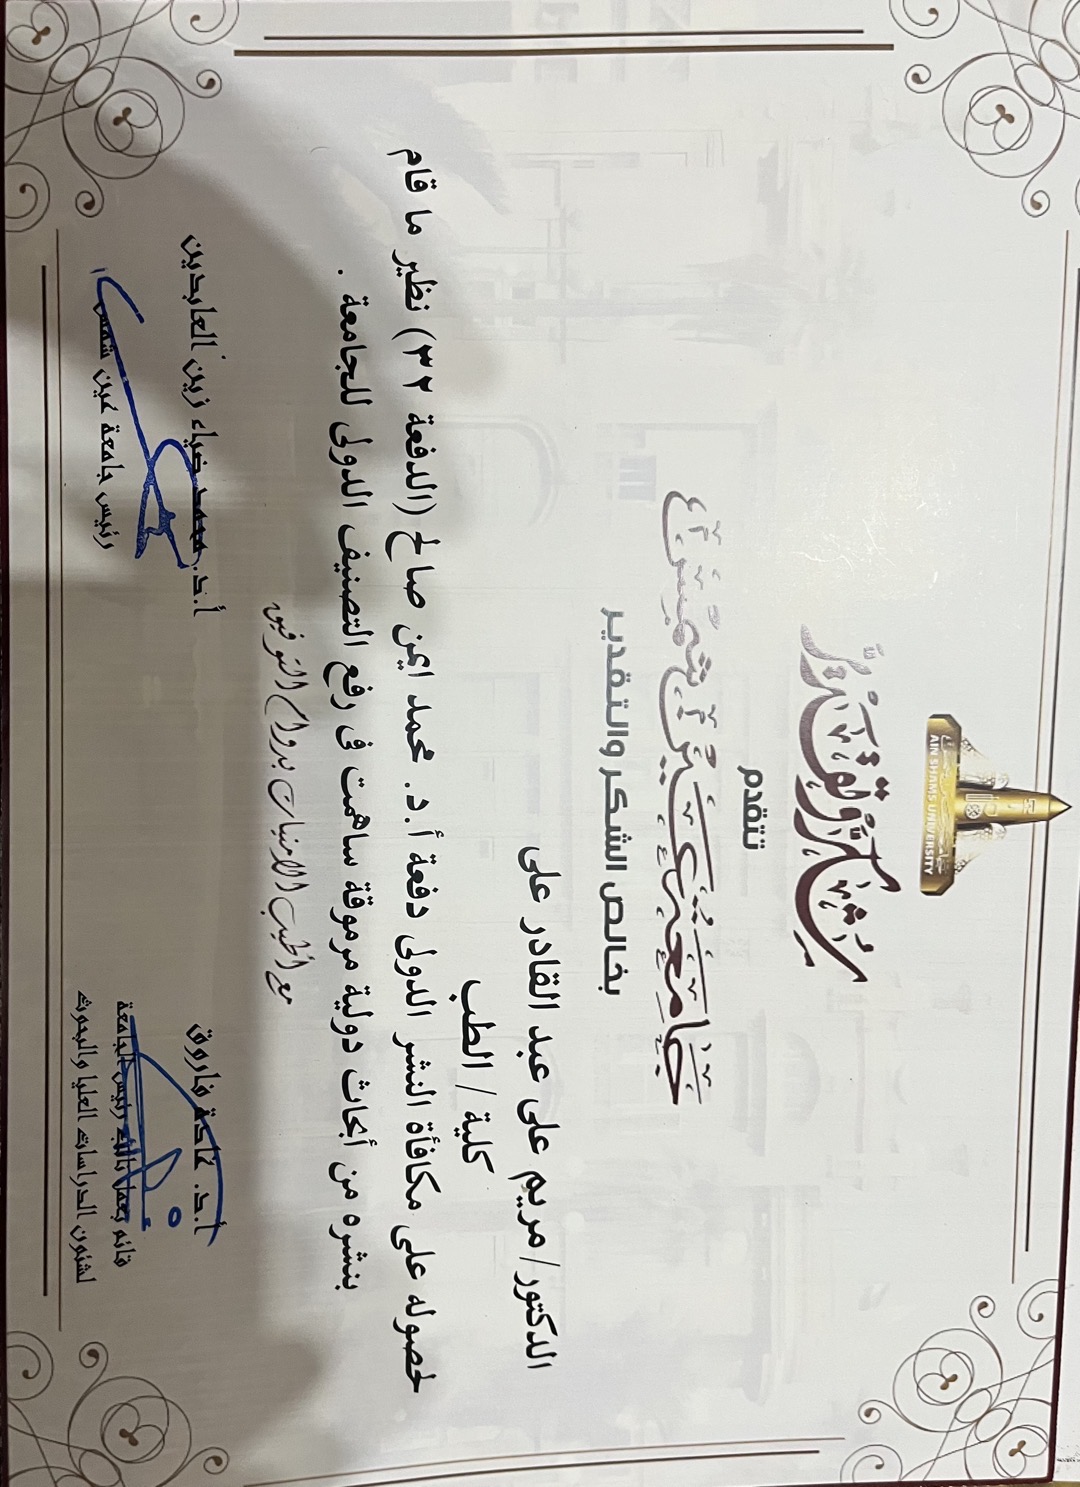 جامعة عين شمس
AIN SHAMS UNIVERSITY
شكر وتقدير
تتقدم
جامعة عين شمس
بخالص الشكر والتقدير
الدكتور/ مريم على عبد القادر على
كلية / الطب
لحصوله على مكافأة النشر الدولى دفعة أ.د. محمد ايمن صالح (الدفعة ٣٢) نظير ما قام
بنشره من أبحاث دولية مرموقة ساهمت فى رفع التصنيف الدولى للجامعة .
مع أطيب الأمنيات بدوام التوفيق
أ.د. غادة فاروق
قائم بعمل نائب رئيس الجامعة
لشئون الدراسات العليا والبحوث
أ.د. محمد ضياء زين العابدين
رئيس جامعة عين شمس